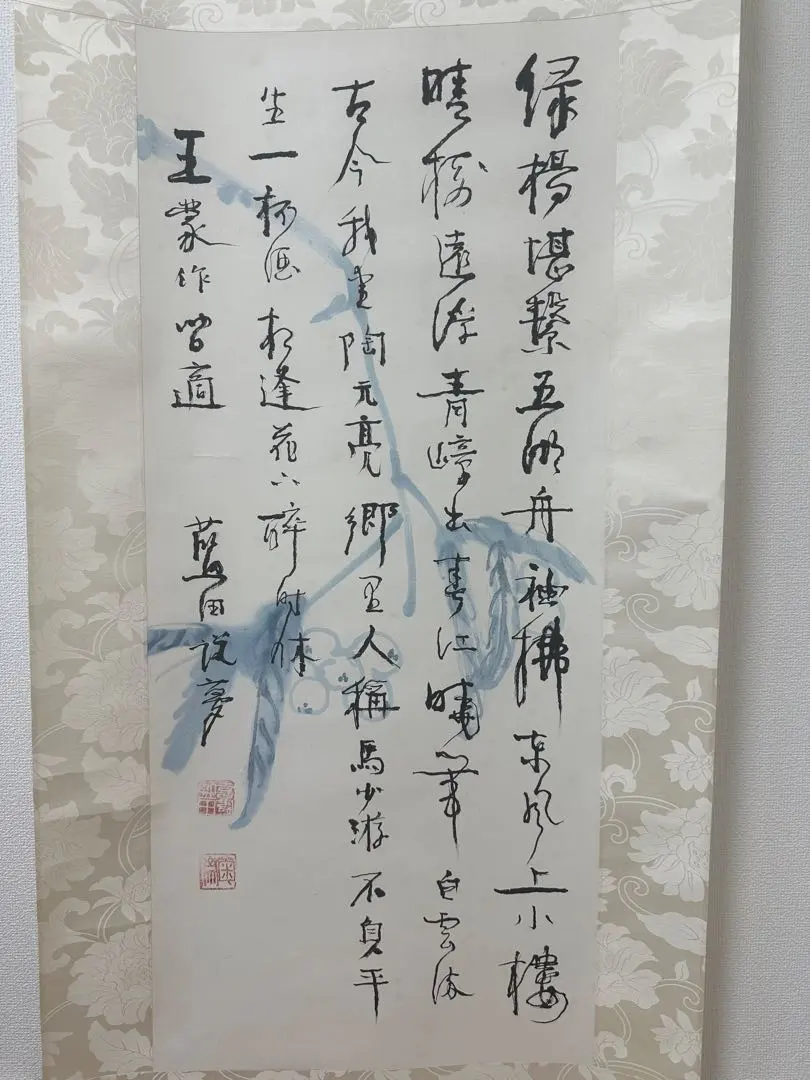 緑楊堪繫五湖舟袖拂東風上小樓
晴樹遠浮青嶂出春江曉帶白雲流
古今我愛陶元亮鄉里人稱馬少游不負平
生一杯酒相逢花下醉時休
王蒙作閒適 藍田説夢